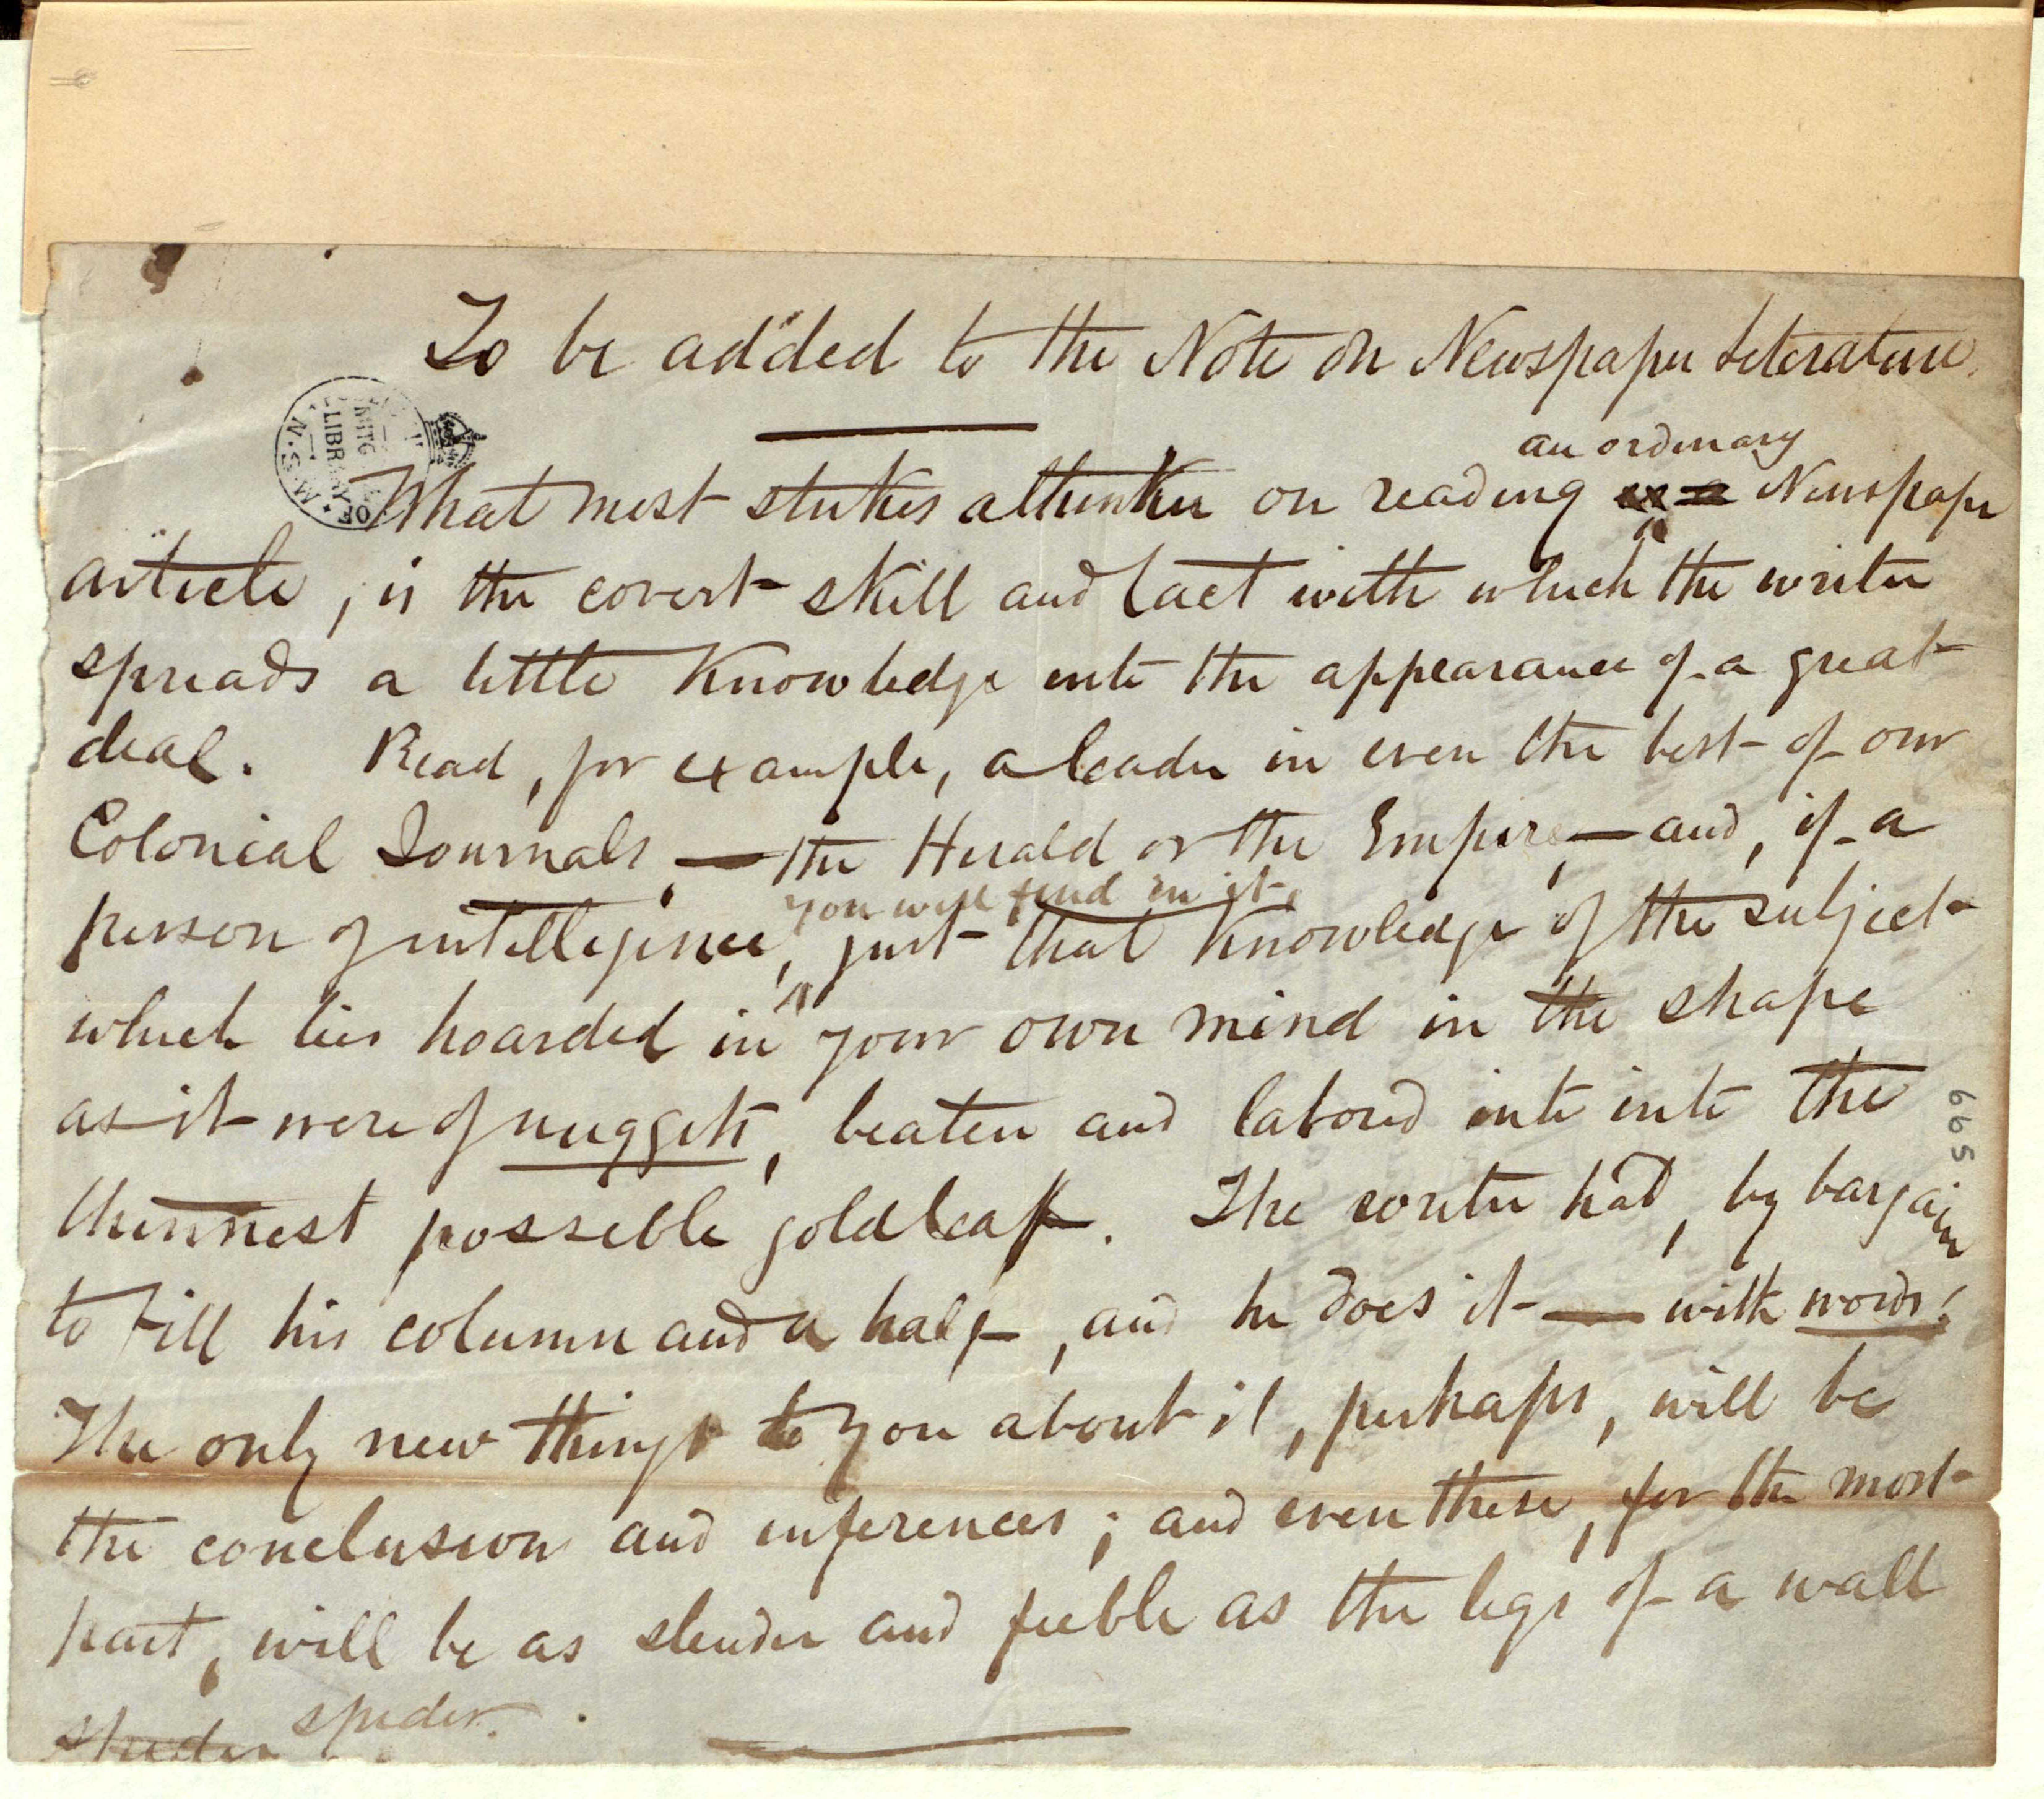 To be added to the Note on Newspaper Literature.
an ordinary
What most strikes a thinker on reading Newspaper
article, is the covert skill and tact with which the writer
spreads a little knowledge into the appearance of a great
deal. Read, for example, a leader in even the best of our
Colonial Journals, — the Herald or the Empire, — and, if a
you will find in it,
person of intelligence, just that knowledge of the subject
which lies hoarded in your own mind in the shape
as it were of nuggets, beaten and labored into into the
thinnest possible goldleaf. The writer had, by bargain
to fill his column and a half, and he does it — with words!
The only new things to you about it, perhaps, will be
the conclusion and inferences; and even these, for the most
part, will be as slender and feeble as the legs of a wall
spider spider.
LIBRARY OF N.S.W.
665